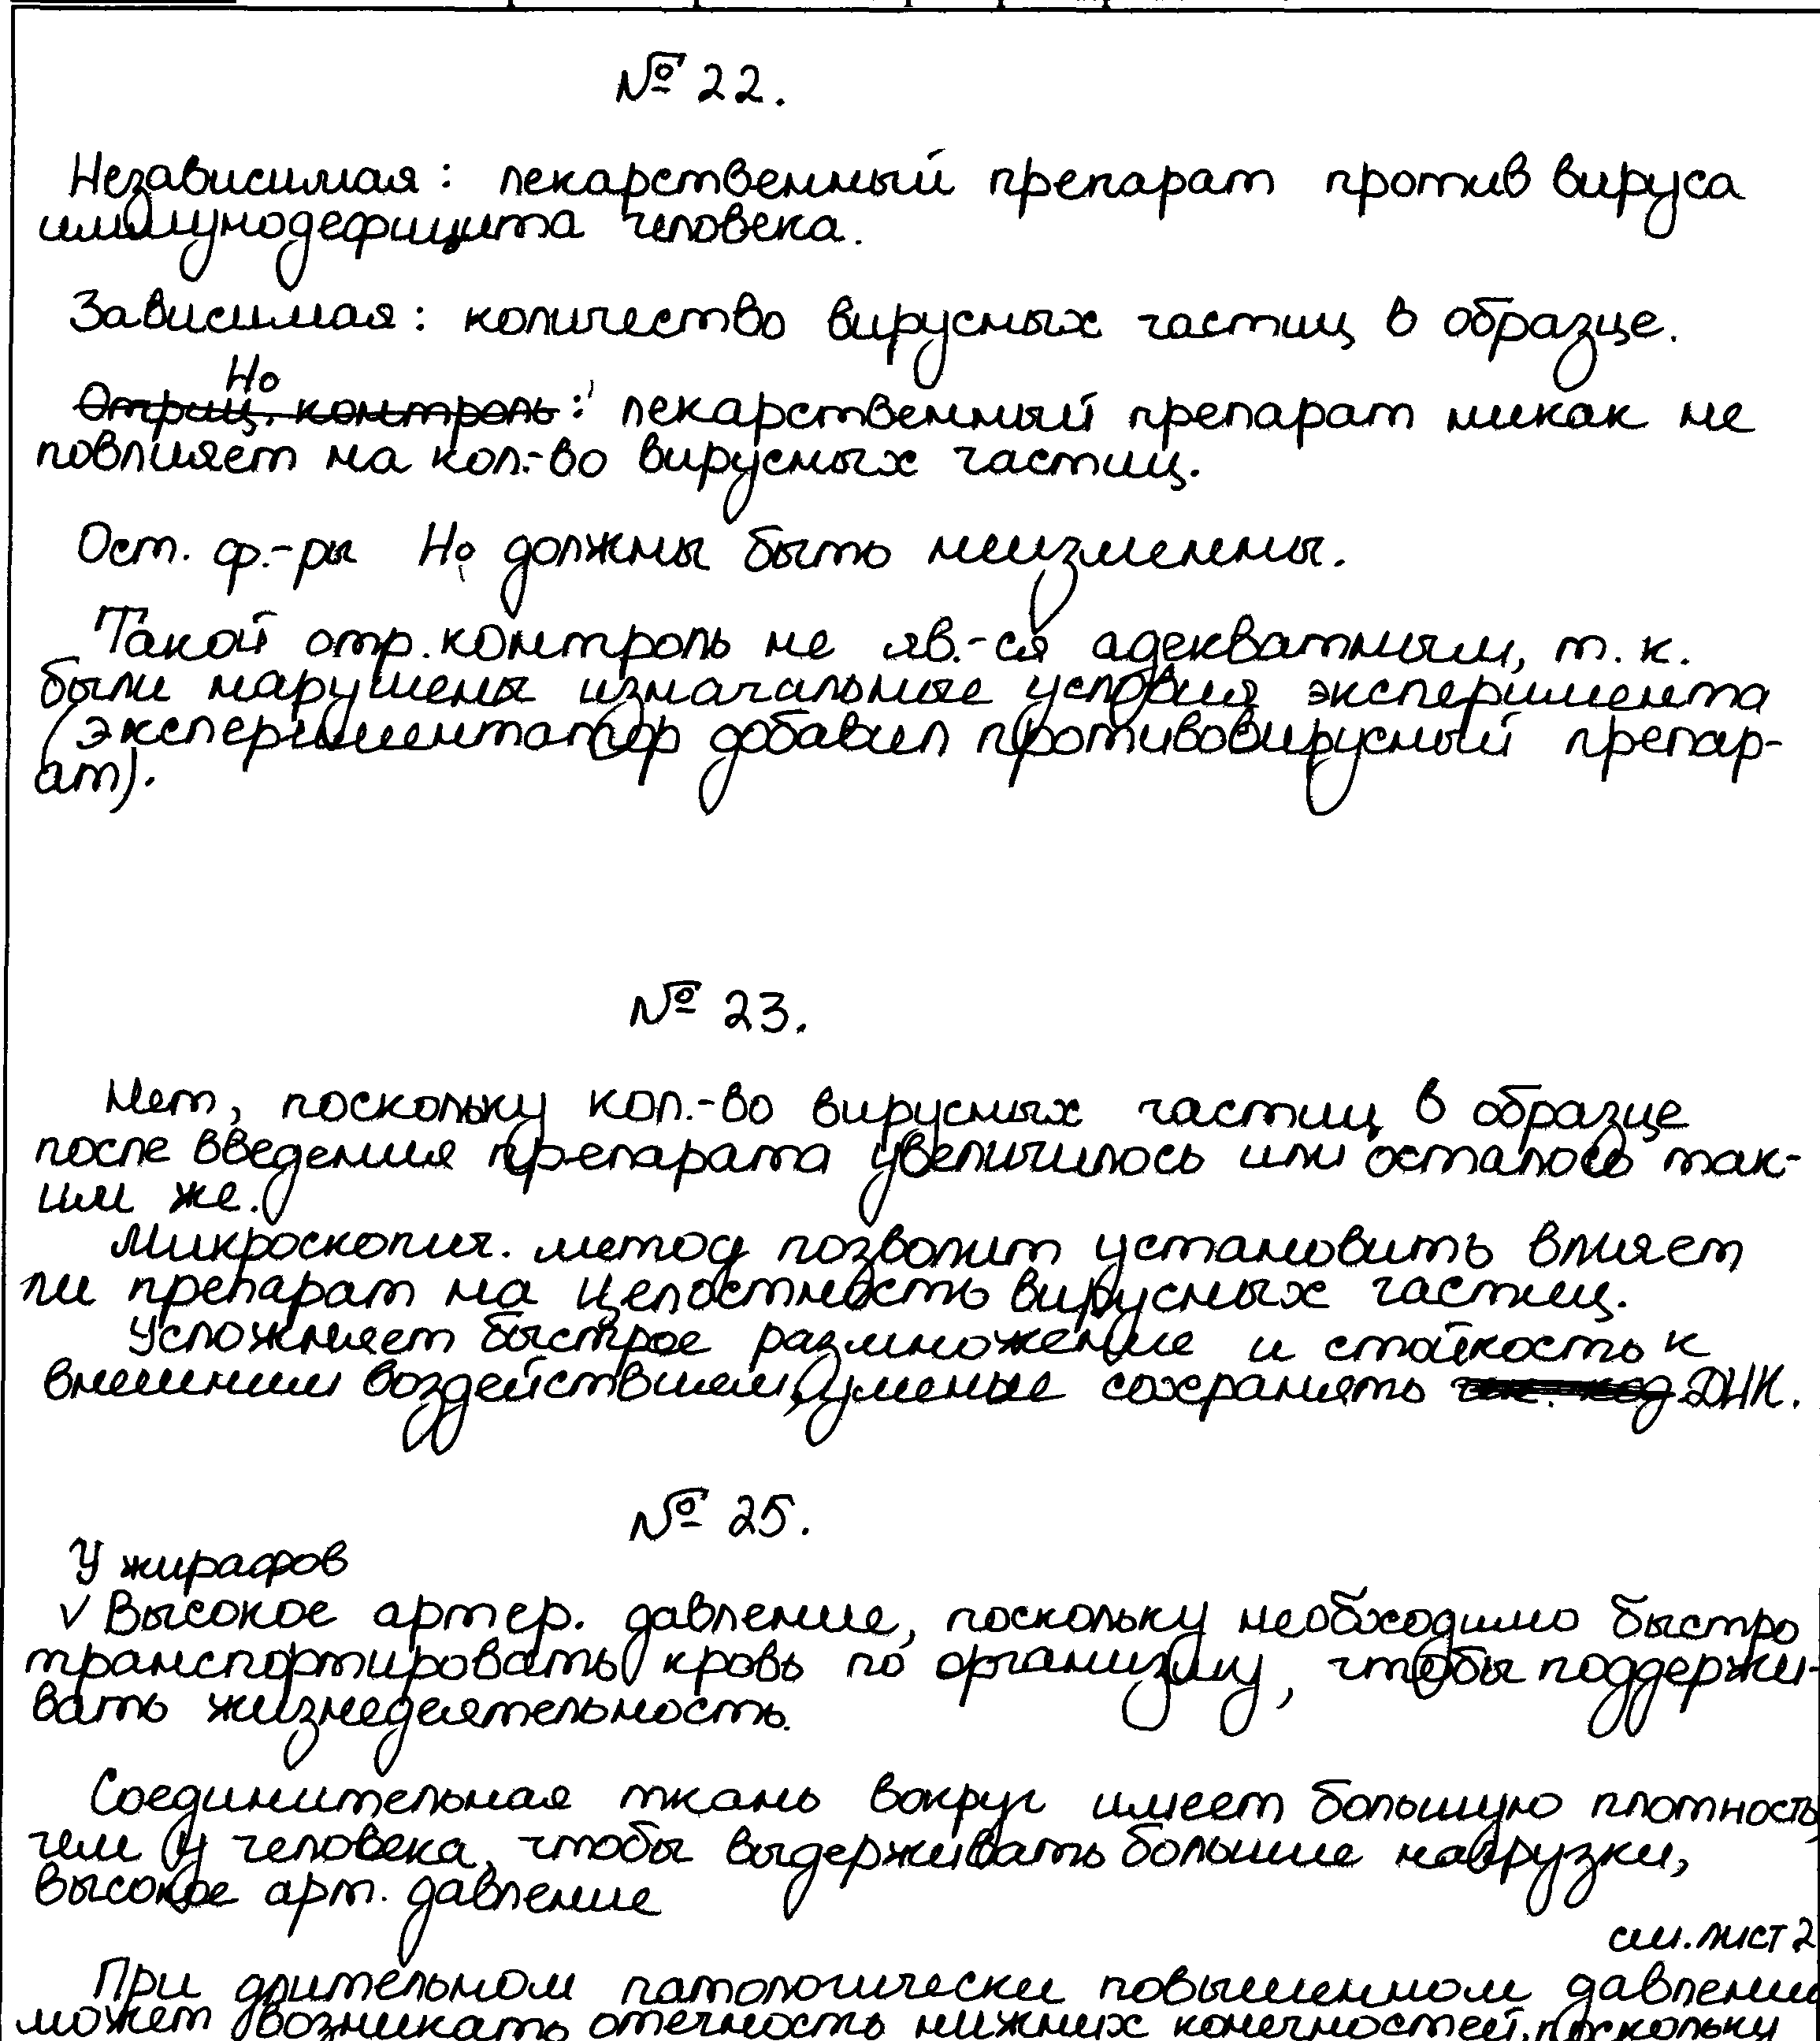 № 22.
Независимая: лекарственный препарат против вируса
иммунодефицита человека.
Зависимая: количество вирусных частиц в образце.
Но
Отриц. контроль: лекарственный препарат никак не
повлияет на кол.-во вирусных частиц.
Ост. ф.-ры Но должны быть неизменны.
Такой отр. контроль не яв.-ся адекватным, т. к.
были нарушены изначальные условия эксперимента
(экспериментатор добавил противовирусный препар-
ат).
№ 23.
Нет, поскольку кол.-во вирусных частиц в образце
после введения препарата увеличилось или осталось так-
им же.
Микроскопич. метод позволит установить влияет
ли препарат на целостность вирусных частиц.
Усложняет быстрое размножение и стойкость к
внешним воздействием, умение сохранять ген. код ДНК.
№ 25.
У жирафов
√ Высокое артер. давление, поскольку необходимо быстро
транспортировать кровь по организму, чтобы поддержи-
вать жизнедеятельность.
Соединительная ткань вокруг имеет большую плотность,
чем у человека, чтобы выдерживать большие нагрузки,
высокое арт. давление
см. лист 2
При длительном патологически повышенном давлении
может возникать отечность нижних конечностей, поскольку